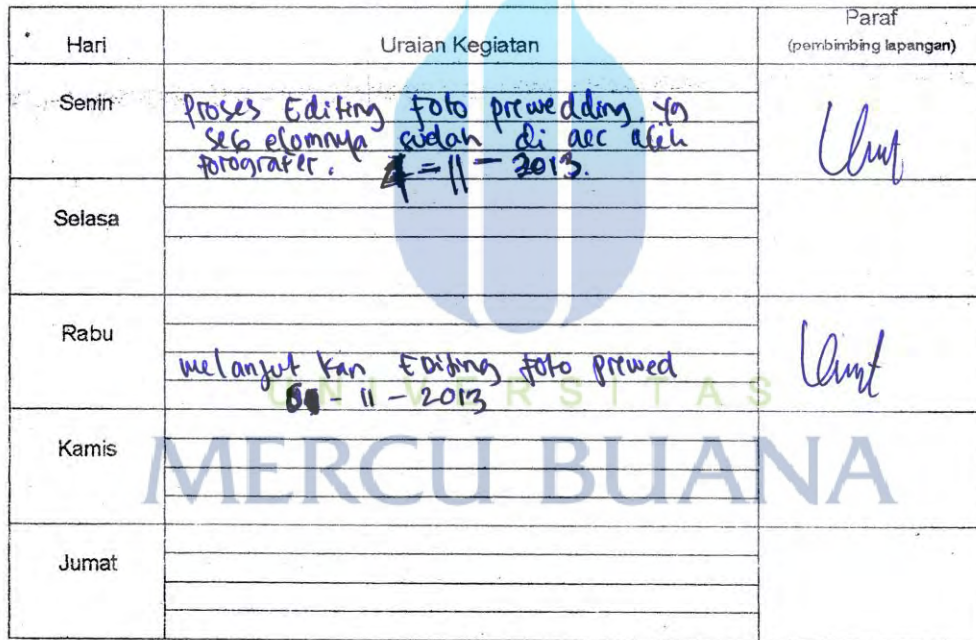 Hari Uraian Kegiatan Paraf
(pembimbing lapangan)
Senin Proses Editing Foto prewedding yg
sebelomnya sudah di acc oleh
fotografer. 4 - 11 - 2013.
Selasa
Rabu
melanjut kan Editing foto prewed
- 11 - 2013
UNIVERSITAS
Kamis
MERCU BUANA
Jumat